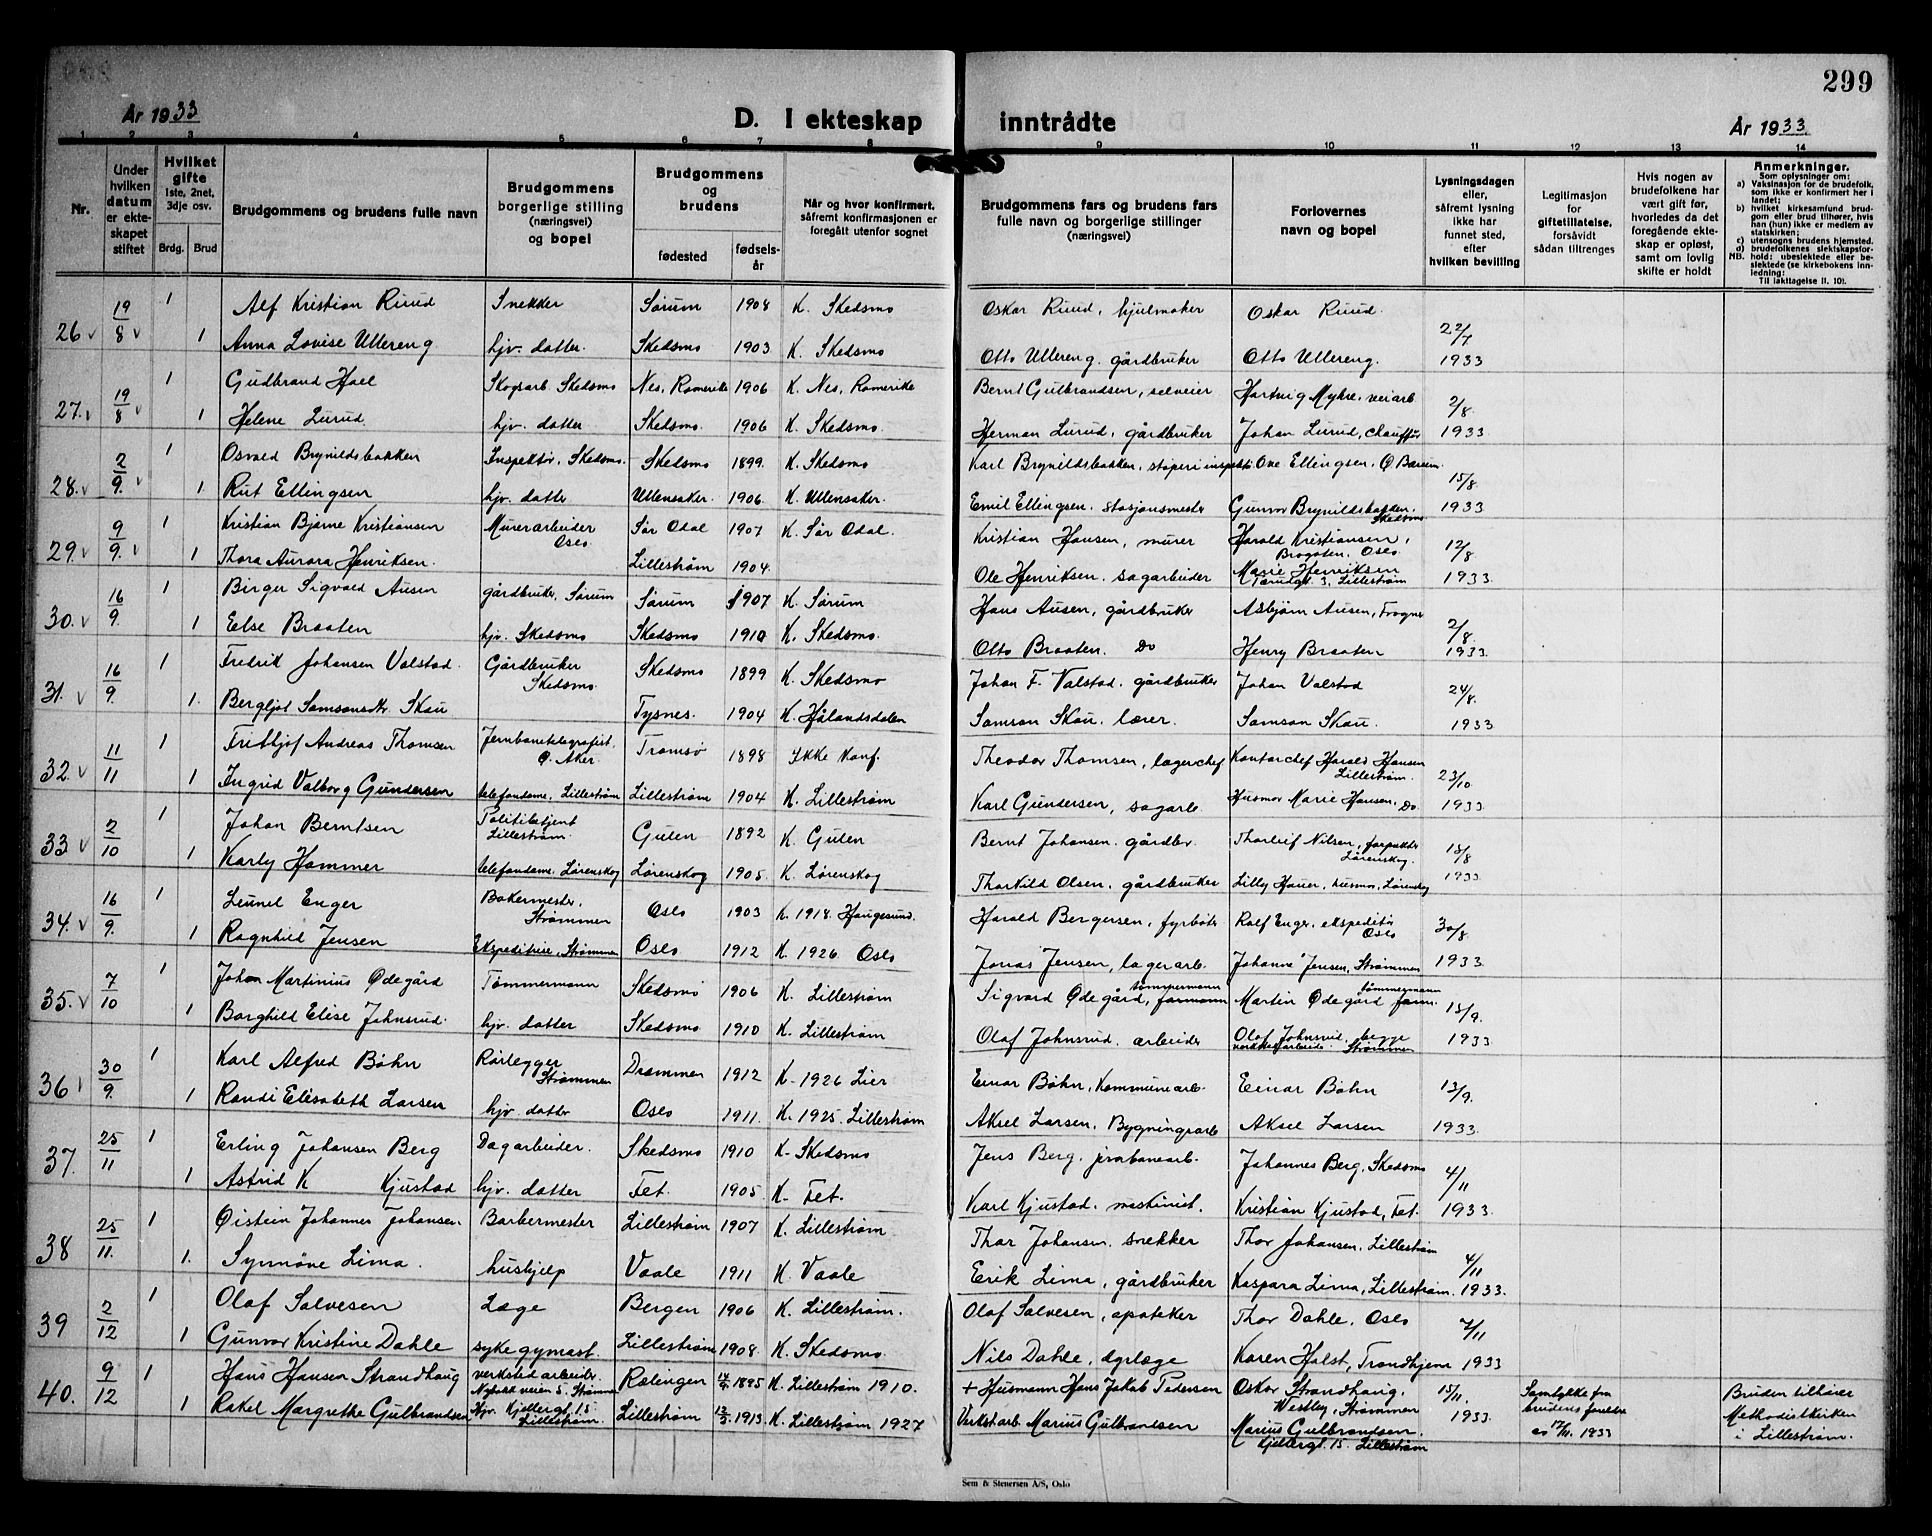 299
År 1933
D. I ekteskap inntrådte
År 1933
1 2 3 4 5 6 7 8 9 10 11 12 13 14
Nr.
Under hvilken datum er ekteskapet stiftet
Hvilket gifte 1ste, 2net, 3dje osv.
Brdg. Brud
Brudgommens og brudens fulle navn
Brudgommens borgerlige stilling (næringsvei) og bopel
Brudgommens og brudens
fødested
fødselsår
Når og hvor konfirmert, såfremt konfirmasjonen er foregått utenfor sognet
Brudgommens fars og brudens fars fulle navn og borgerlige stillinger (næringsvei)
Forlovernes navn og bopel
Lysningsdagen eller, såfremt lysning ikke har funnet sted, efter hvilken bevilling
Legitimasjon for giftetillatelse, forsåvidt sådan tiltrenges
Hvis nogen av brudefolkene har vært gift før, hvorledes da det foregående ekteskap er opløst, samt om lovlig skifte er holdt
Anmerkninger.
Som oplysninger om:
a) Vaksinasjon for de brudefolk, som ikke er konfirmert her i landet;
b) hvilket kirkesamfund brudgom eller brud tilhører, hvis han (hun) ikke er medlem av statskirken;
c) utensogns brudens hjemsted.
d) brudefolkenes slektskapsforhold: ubeslektede eller beslektede (se kirkebokens innledning:
NB.
Til iakttagelse II. 10).
26 19/8 1 Alf Kristian Ruud Snekker Sørum 1908 K. Skedsmo Oskar Ruud, hjulmaker Oskar Ruud. 22/7
1 Anna Lovise Ullereng hjv. datter. Skedsmo 1903 K. Skedsmo Otto Ullereng. gårdbruker Otto Ullereng. 1933
27. 19/8 1 Gudbrand Hoel Skogsarb. Skedsmo Nes, Romerike 1906 K. Nes, Romerike Bernt Gulbrandsen, selveier Hartvig Myhre. veiarb 2/8.
1 Helene Lurud. hjv. datter Skedsmo. 1906 K. Skedsmo. Herman Lurud, gårdbruker Johan Lurud, chauffør 1933
28. 2/9. 1 Osvald Brynildsbakken Inspektør, Skedsmo. Skedsmo 1899. K. Skedsmo Karl Brynildsbakken, støperiinspekt. Ove Ellingsen, Ø Bærum. 15/8
1. Rut Ellingsen hjv. datter Ullensaker. 1906. K. Ullensaker. Emil Ellingsen. stasjonsmester Gunvor Brynildsbakken. Skedsmo 1933
29. 9/9. 1 Kristian Bjarne Kristiansen Murerarbeider Oslo Sør Odal 1907 K. Sør Odal. Kristian Hansen, murer Harald Kristiansen, Brogaten. Oslo 12/8
1 Thora Aurora Henriksen. Lillestrøm 1904. Ole Henriksen. sagarbeider Marie Henriksen 3, Lillestrøm 1933.
30. 16/9. 1 Birger Sigvald Ausen gårdbruker, Sørum Sørum 1907 K. Sørum Hans Ausen, gårdbruker Asbjørn Ausen, Frogner 2/8.
1 Else Braaten hjv. Skedsmo Skedsmo 1910 K. Skedsmo. Otto Braaten. Do Henry Braaten 1933.
31. 16/9. 1 Fredrik Johansen Valstad. Gårdbruker Skedsmo. Skedsmo 1899 K. Skedsmo Johan F. Valstad. gårdbruker Johan Valstad 24/8.
1. Bergljot Samsonsdtr. Skau Tysnes. 1904 K. Hålandsdalen Samson Skau. lærer. Samson Skau. 1933
32. 11/11 1 Fritthjof Andreas Thomsen Jernbanetelegrafist. Ø. Aker. Tromsø 1898 Ikke konf. Theodor Thomsen, lagerchef Kontorchef Harald Hansen Lillestrøm. 23/10
1 Ingrid Valborg Gundersen telefondame, Lillestrøm Lillestrøm 1904 K. Lillestrøm Karl Gundersen, sagarb. Husmor Marie Hansen. Do 1933.
33 2/10 1 Johan Berntsen Politibetjent Lillestrøm. Gulen 1892 K. Gulen Bernt Johansen. gårdbr. Thorleif Nilsen, forpakter Lørenskog. 15/8
1 Karly Hammer telefondame. Lørenskog Lørenskog 1905 K. Lørenskog Thorkild Olsen. gårdbruker Lilly Hauer, husmor, Lørenskog 1933
34. 16/9. 1 Leunel Enger Bakermester, Strømmen Oslo 1903 K. 1918. Haugesund. Harald Bergersen, fyrbøter Rolf Enger. ekspeditør Oslo 30/8.
1 Ragnhild Jensen Ekspeditrise, Strømmen Oslo 1912 K. 1926 Oslo Jonas Jensen, lagerarb. Johanne Jensen, Strømmen 1933.
35. 7/10 1 Johan Martinius Ødegård Tømmermann Skedsmo 1906 K. Lillestrøm Sigvard Ødegård, tømmermann formann Martin Ødegård tømmermann form. 15/9.
1 Borghild Elise Johnsrud. hjv. datter Skedsmo 1910 K. Lillestrøm Olaf Johnsrud. arbeider Olaf Johnsrud, begge Strømmen 1933
36 30/9. 1 Karl Alfred Bøhn Rørlegger Strømmen Drammen 1912 K. 1926 Lier Einar Bøhn, Kommunearb. Einar Bøhn 13/9.
1 Randi Elisabeth Larsen hjv. datter Oslo 1911. K. 1925. Lillestrøm Aksel Larsen. Bygningsarb Aksel Larsen 1933.
37. 25/11 1 Erling Johansen Berg Dagarbeider. Skedsmo 1910 K. Skedsmo Jens Berg. jernbanearb. Johannes Berg, Skedsmo 4/11
1 Astrid K Kjustad hjv. datter Fet. 1905. K. Fet. Karl Kjustad. maskinist. Kristian Kjustad, Fet. 1933.
38 25/11. 1 Øistein Johannes Johansen. Barbermester Lillestrøm 1907 K. Lillestrøm Thor Johansen. snekker Thor Johansen. Lillestrøm 4/11
1. Synnøve Lima. hushjelp Vaale 1911 K. Vaale Erik Lima, gårdbruker Kaspara Lima, Lillestrøm. 1933.
39 2/12 1 Olaf Salvesen Læge Bergen 1906 K. Lillestrøm. Olaf Salvesen, apoteker Thor Dahle. Oslo 7/11
1 Gunvor Kristine Dahle sykegymast. Lillestrøm 1908. K. Skedsmo. Nils Dahle. dyrlæge Karen Holst, Trondhjem 1933
40. 9/12 1 Hans Hansen Strandhaug verksted arbeider. 5. Strømmen Rælingen 1895 K. Lillestrøm 1910. + Husmann Hans Jakob Pedersen Oskar Strandhaug. Westby, Strømmen 15/11. Samtykke fra Bruden tilhører
1 Rakel Margrethe Gulbrandsen Hjv. Kjellergt. 15 Lillestrøm. Lillestrøm 1913. K. Lillestrøm 1927 Verkst.arb. Marius Gulbrandsen Marius Gulbrandsen. Kjellergt. 15 Lillestrøm 1933. brudens foreldre av 17/11. 1933 Methodistkirken i Lillestrøm.
Sem & Stenersen A/S, Oslo